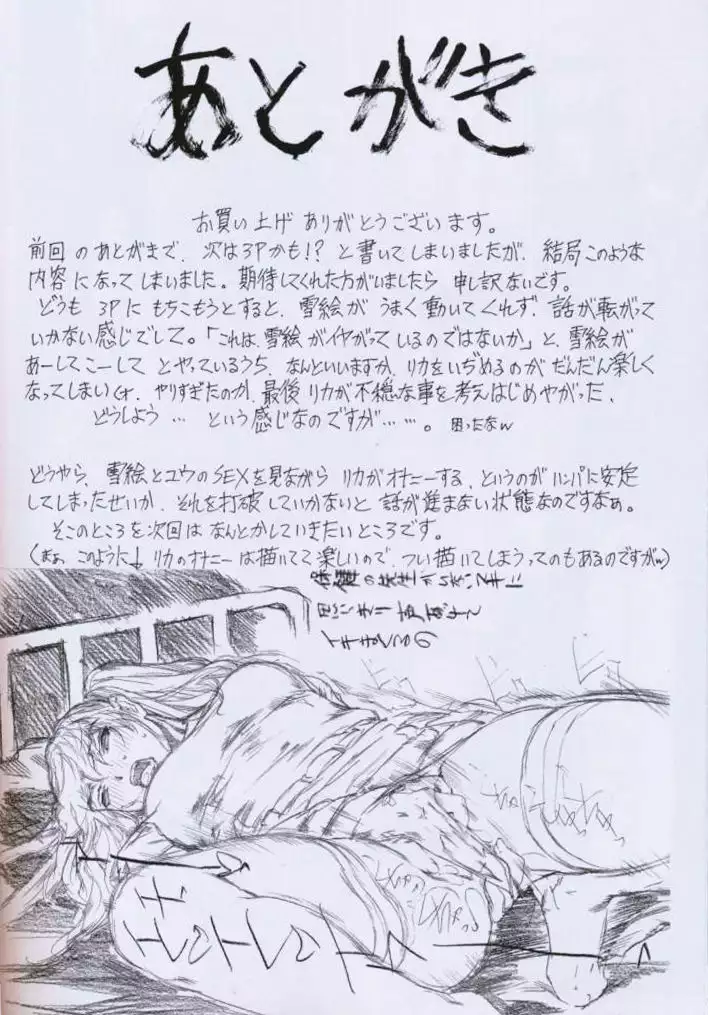 あとがき
お買い上げ ありがとうございます。
前回のあとがきで、次は3Pかも!? と書いてしまいましたが、結局このような
内容になってしまいました。期待してくれた方がいましたら 申し訳ないです。
どうも 3Pに もちこもうとすると、雪絵が うまく動いてくれず、話が転がって
いかない感じでして。「これは、雪絵がイヤがっているのではないか」と、雪絵が
あーしてこーして とやっているうち、なんといいますか、リカをいぢめるのが だんだん楽しく
なってしまい、やりすぎたのか、最後 リカが不穏な事を考えはじめやがった、
どうしよう … という感じなのですが……。 困ったなw
どうやら、雪絵とユウのSEXを見ながら リカがオナニーする、というのが ハンパに安定
してしまったせいか、それを打破していかないと 話が進まない状態なのですなぁ。
そこのところを次回は なんとかしていきたいところです。
(まぁ、このように↓ リカのオナニーは描いてて楽しいので、つい描いてしまうってのもあるのですがw)